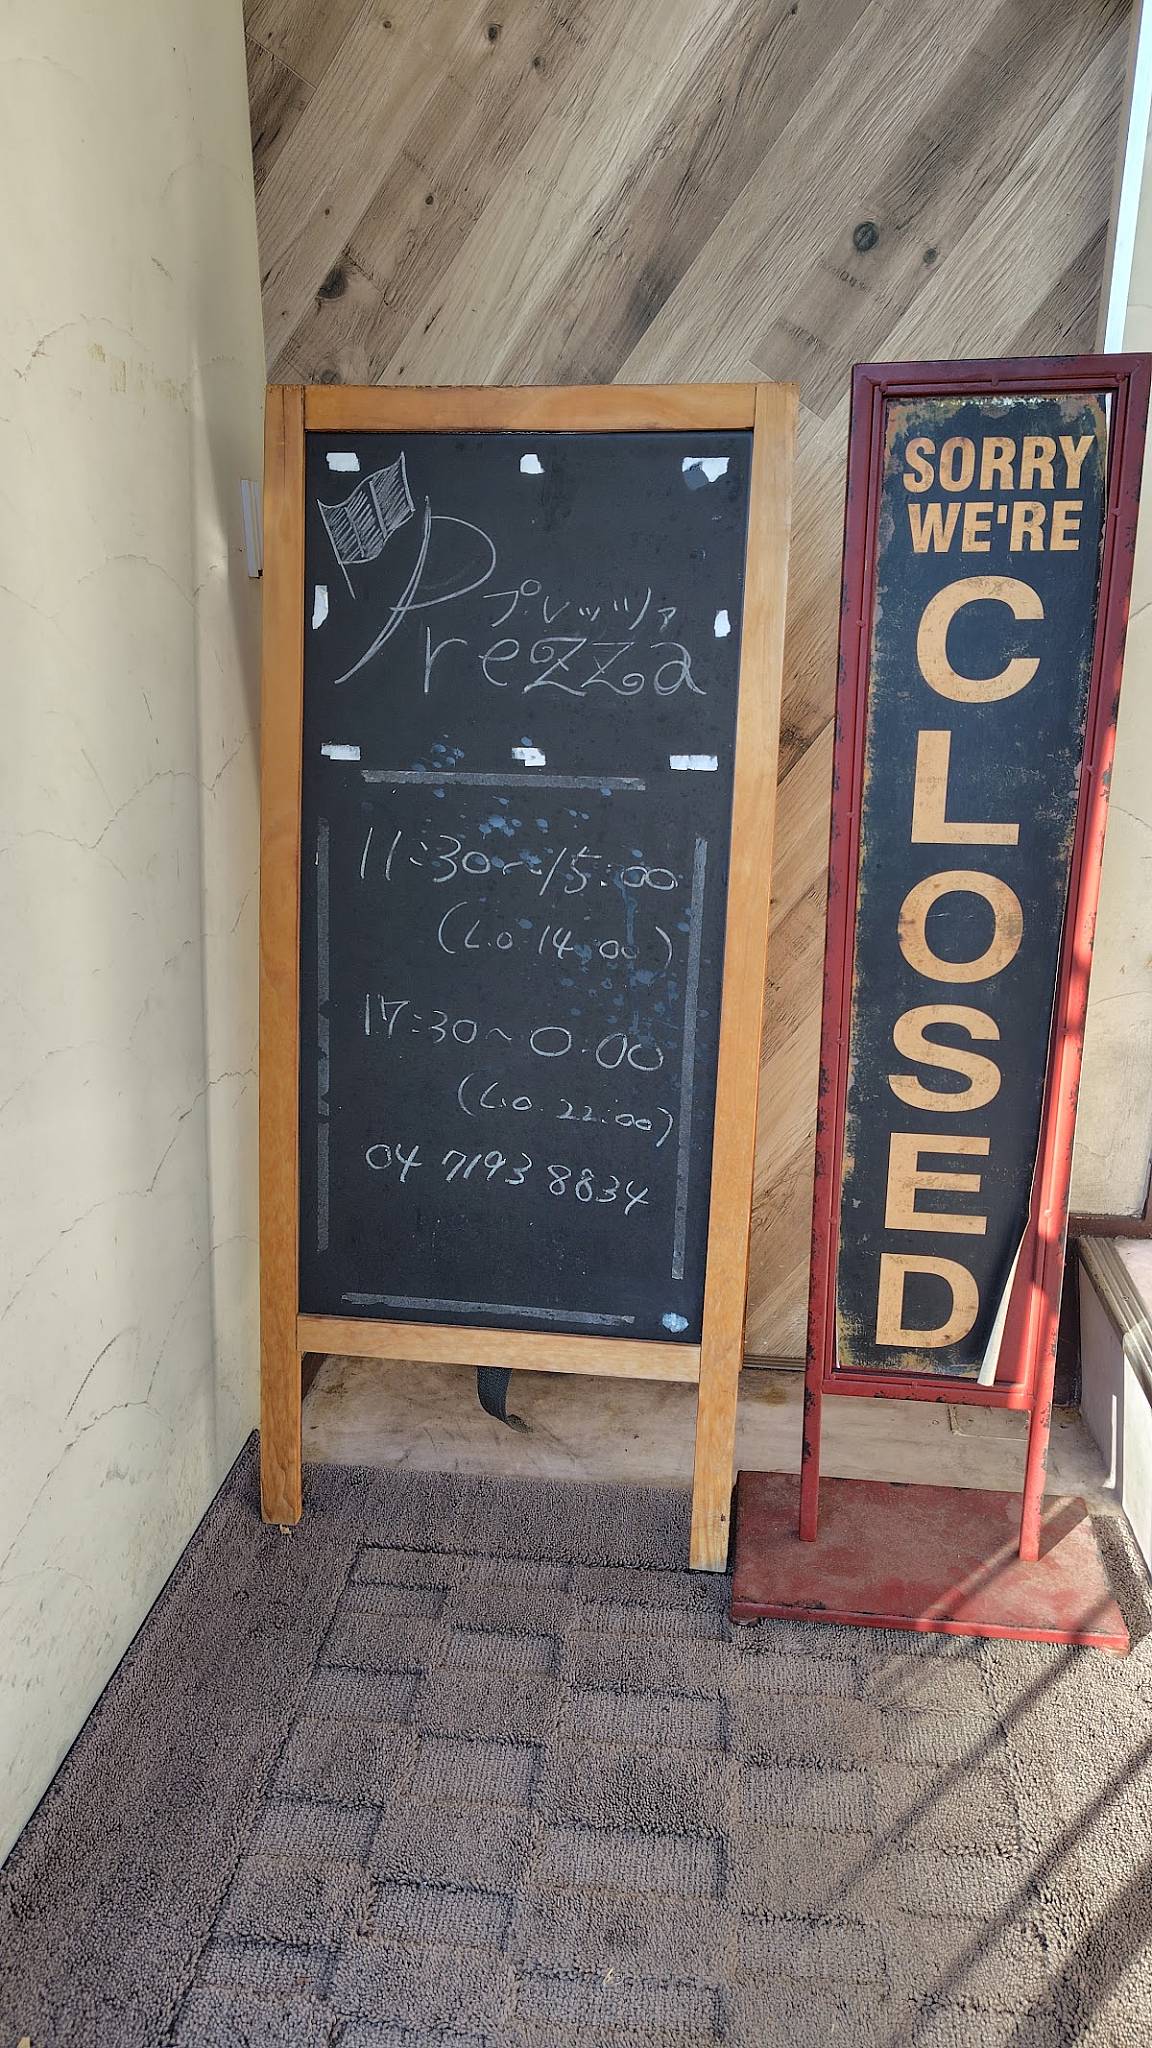 プレッツァ
Prezza
11:30〜15:00
(L.O 14:00)
17:30〜0:00
(L.O. 22:00)
04 7193 8834
SORRY
WE'RE
CLOSED